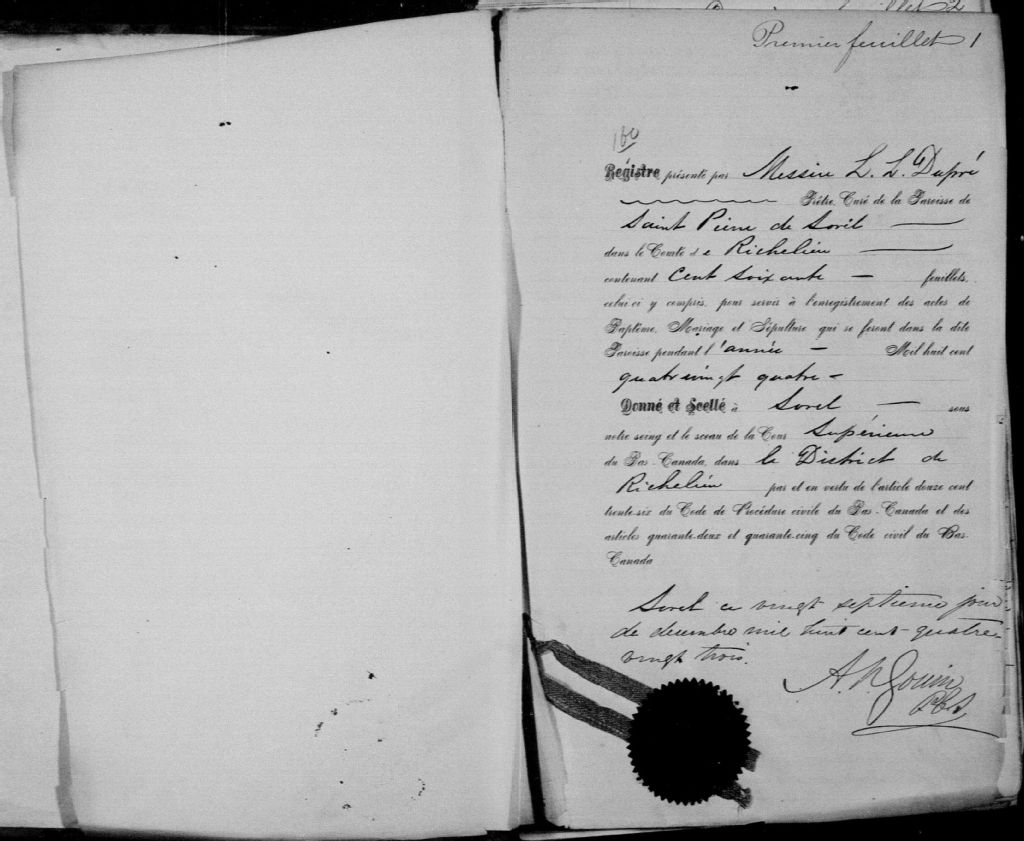 Premier feuillet 1
160
Régistre présenté par Messire L. L. Dupré
Prêtre, Curé de la Paroisse de
Saint Pierre de Sorel
dans le Comté de Richelieu
contenant Cent Soixante feuillets,
celui-ci y compris, pour servir à l'enregistrement des actes de
Baptême, Mariage et Sépulture qui se feront dans la dite
Paroisse pendant l'année Mil huit cent
quatrevingt quatre
Donné et Scellé à Sorel sous
notre seing et le sceau de la Cour Supérieure
du Bas-Canada, dans le District de
Richelieu par et en vertu de l'article douze cent
trente-six du Code de Procédure civile du Bas-Canada et des
articles quarante-deux et quarante-cinq du Code civil du Bas-
Canada
Sorel ce vingt septieme jour
de decembre mil huit cent quatre
vingt trois.
A. N. Gouin
P.C.S.